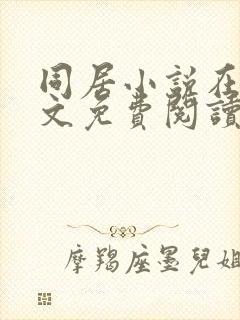 同居小说在
文免费閱讀
摩羯座墨兒姐